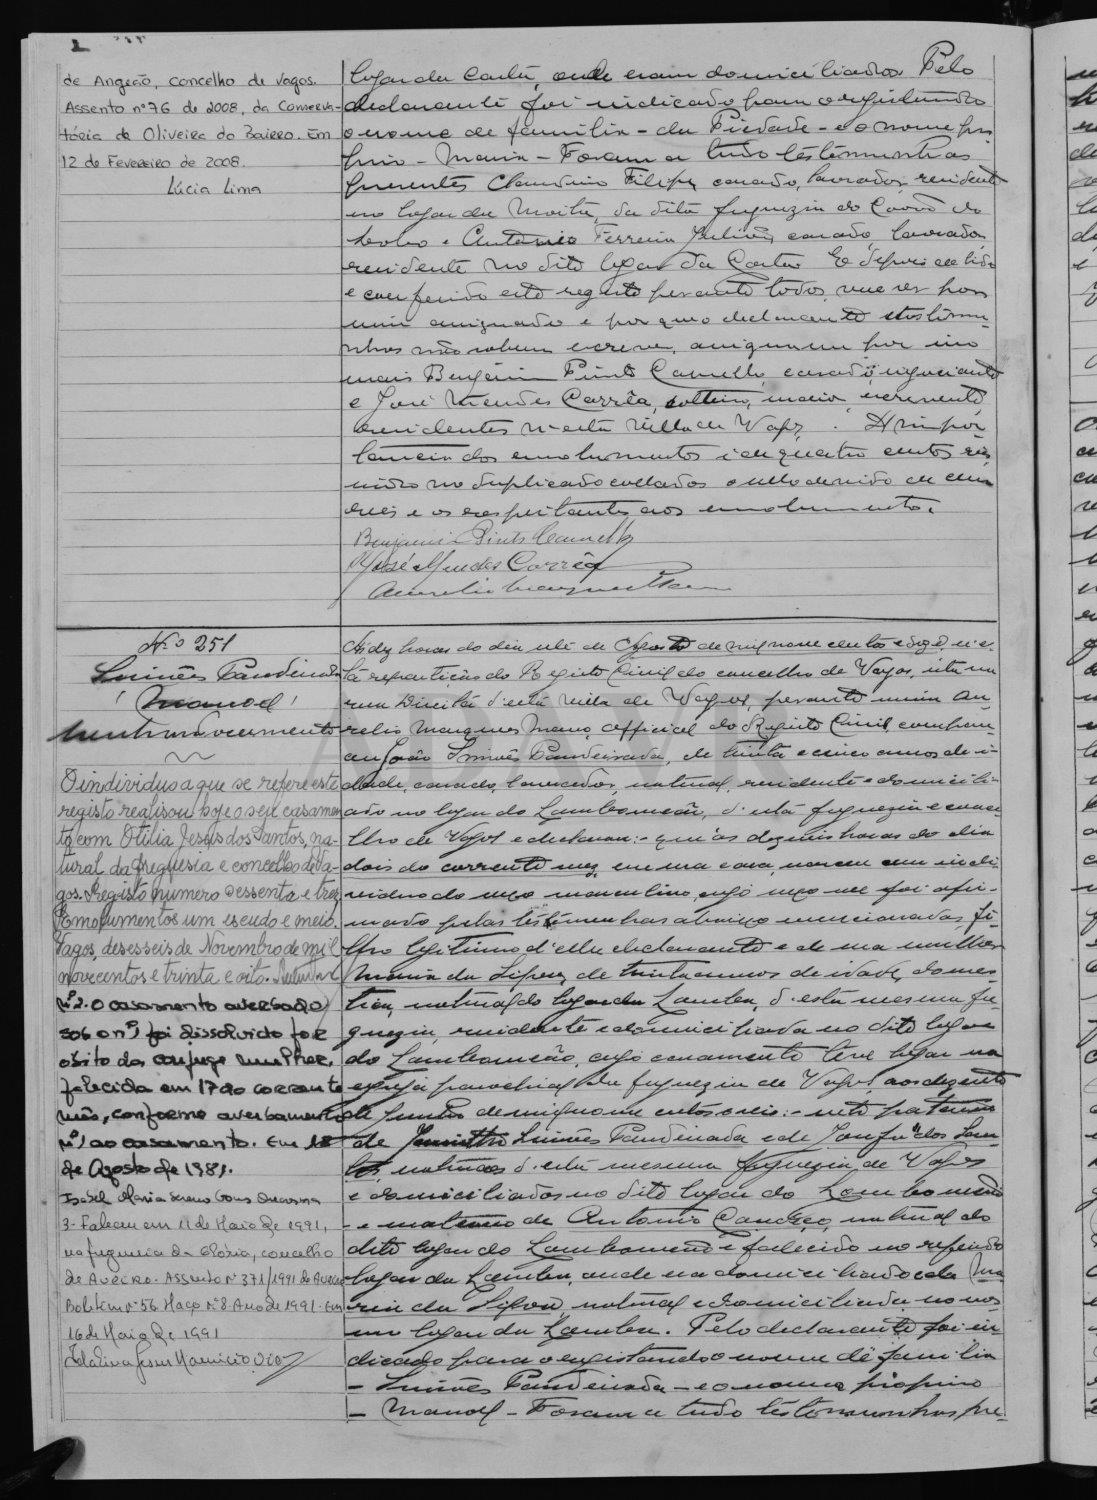 de Angeão, concelho de Vagos.
Assento nº 76 de 2008, da Conserva-
tória de Oliveira do Bairro. Em
12 de Fevereiro de 2008.
Lúcia Lima
logar da Carta, onde eram domiciliados. Pelo
declarante foi indicado para o registando
o nome de familia - da Piedade - e o nome pro
prio - Maria - Foram a tudo testemunhas
presentes Claudino Filipe, casado, lavrador, residente
no logar da Moita, da dita freguezia de Covão do
Lobo e Antonio Ferreira casado, lavrador,
residente no dito logar da Carta. E depois de lido
e conferido este registo perante todos, vae ser por
mim assignado e por que o declarante testemu-
nhas não sabem escrever, assignam por
Benjamim Pinto Camello, casado, negociante
e José Mendes Corrêa, solteiro, maior, escrevente,
residentes n'esta villa de Vagos. A impor-
tancia dos emolumentos é de quatro centos reis,
no duplicado collados o sello devido de cem
reis e os respeitantes aos emolumentos.
Benjamim Pinto Camello
José Mendes Corrêa
Aurelio Marques Mano
Nº 251
Simões Pandeirada
(Manoel)
O individuo a que se refere este
registo realisou hoje o seu casamen
to com Otilia Jesus dos Santos, na-
tural da freguesia e concelho de Va-
gos. Registo numero sessenta e tres.
Emolumentos um escudo e meio.
Vagos, desesseis de Novembro de mil
novecentos e trinta e oito.
nº 2. O casamento averbado
sob o nº 1 foi dissolvido por
óbito do conjuge mulher,
falecida em 17 do corrente
mês, conforme averbamento
nº 1 ao casamento. Em 18
de Agosto de 1981.
Isabel Maria
3- Faleceu em 11 de Maio de 1991,
na freguesia da Glória, concelho
de Aveiro. Assento nº 371/1991 de Aveiro
Boletim nº 56 Maço nº 8 Ano de 1991. Em
16 de Maio de 1991
Ás dez horas do dia sete de Agosto de mil nove centos e doze, n'es-
ta repartição do Registo Civil do concelho de Vagos, sita na
rua Direita d'esta villa de Vagos, perante mim Au-
relio Marques Mano, official do Registo Civil, compare-
ceu João Simões Pandeirada, de trinta e cinco annos de i-
dade, casado, lavrador, natural, residente e domicili-
ado no logar do Lombomeão, d'esta freguezia e conce-
lho de Vagos e declarou: - que ás dez horas do dia
dois do corrente mez, em sua casa, nasceu um indi-
viduo do sexo masculino, cujo sexo me foi afir-
mado pelas testemunhas abaixo mencionadas, fi-
lho legitimo d'elle declarante e de sua mulher
Maria da Silva, de trinta annos de idade, domes
tica, natural do logar da Lomba, d'esta mesma fre
guezia, residente e domiciliada no dito logar
do Lombomeão, cujo casamento teve logar na
egreja parochial da freguezia de Vagos, aos dezoito
de Junho de mil nove centos e seis: - neto paterno
de Simões Pandeirada e de Josefa dos San-
tos, naturaes d'esta mesma freguezia de Vagos
e domiciliados no dito logar do Lombomeão
- e materno de Antonio natural do
dito logar do Lombomeão e falecido no referido
logar da Lomba, onde era domiciliado e da Ma
ria da Silva, natural e domiciliada no mes-
mo logar da Lomba. Pelo declarante foi in-
dicado para o registando o nome de familia
- Simões Pandeirada - e o nome proprio
- Manoel - Foram a tudo testemunhas pre-